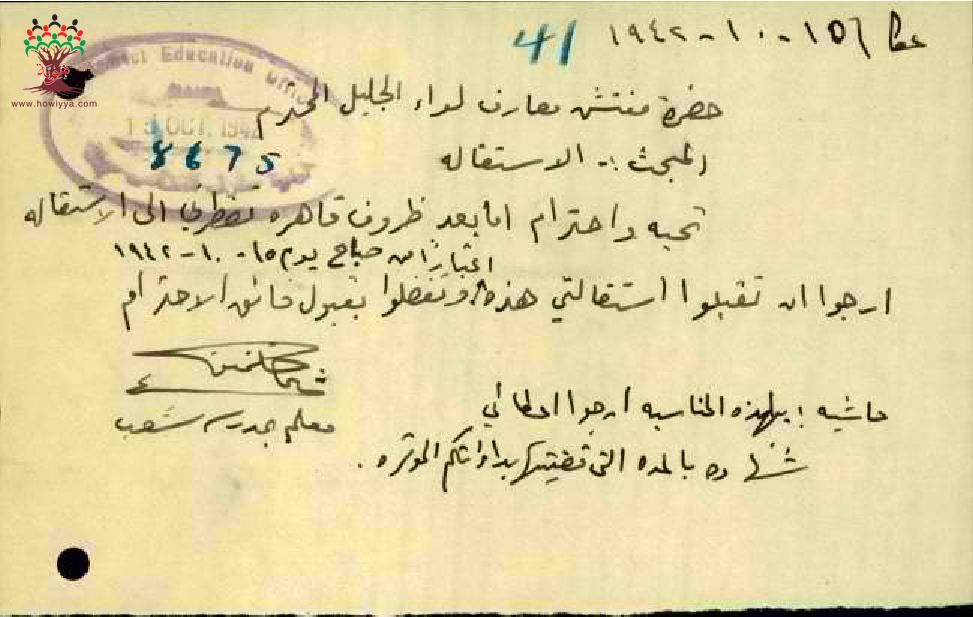 عكا في ١٥-١٠-١٩٤٢
41
هوية
www.howiyya.com
District Education Office
HAIFA
15 OCT. 1942
8675
حضرة مفتش معارف لواء الجليل المحترم
المبحث :- الاستقاله
تحيه واحترام اما بعد ظروف قاهره تضطرني الى الاستقاله
اعتباراً من صباح يوم ١٥-١٠-١٩٤٢
ارجوا ان تقبلوا استقالتي هذه وتفضلوا بقبول فائق الاحترام
معلم مدرسة شعب
حاشيه : بهذه المناسبه ارجوا اعطائي
شهاده بالمده التي قضيتها بدائرتكم الموقره .